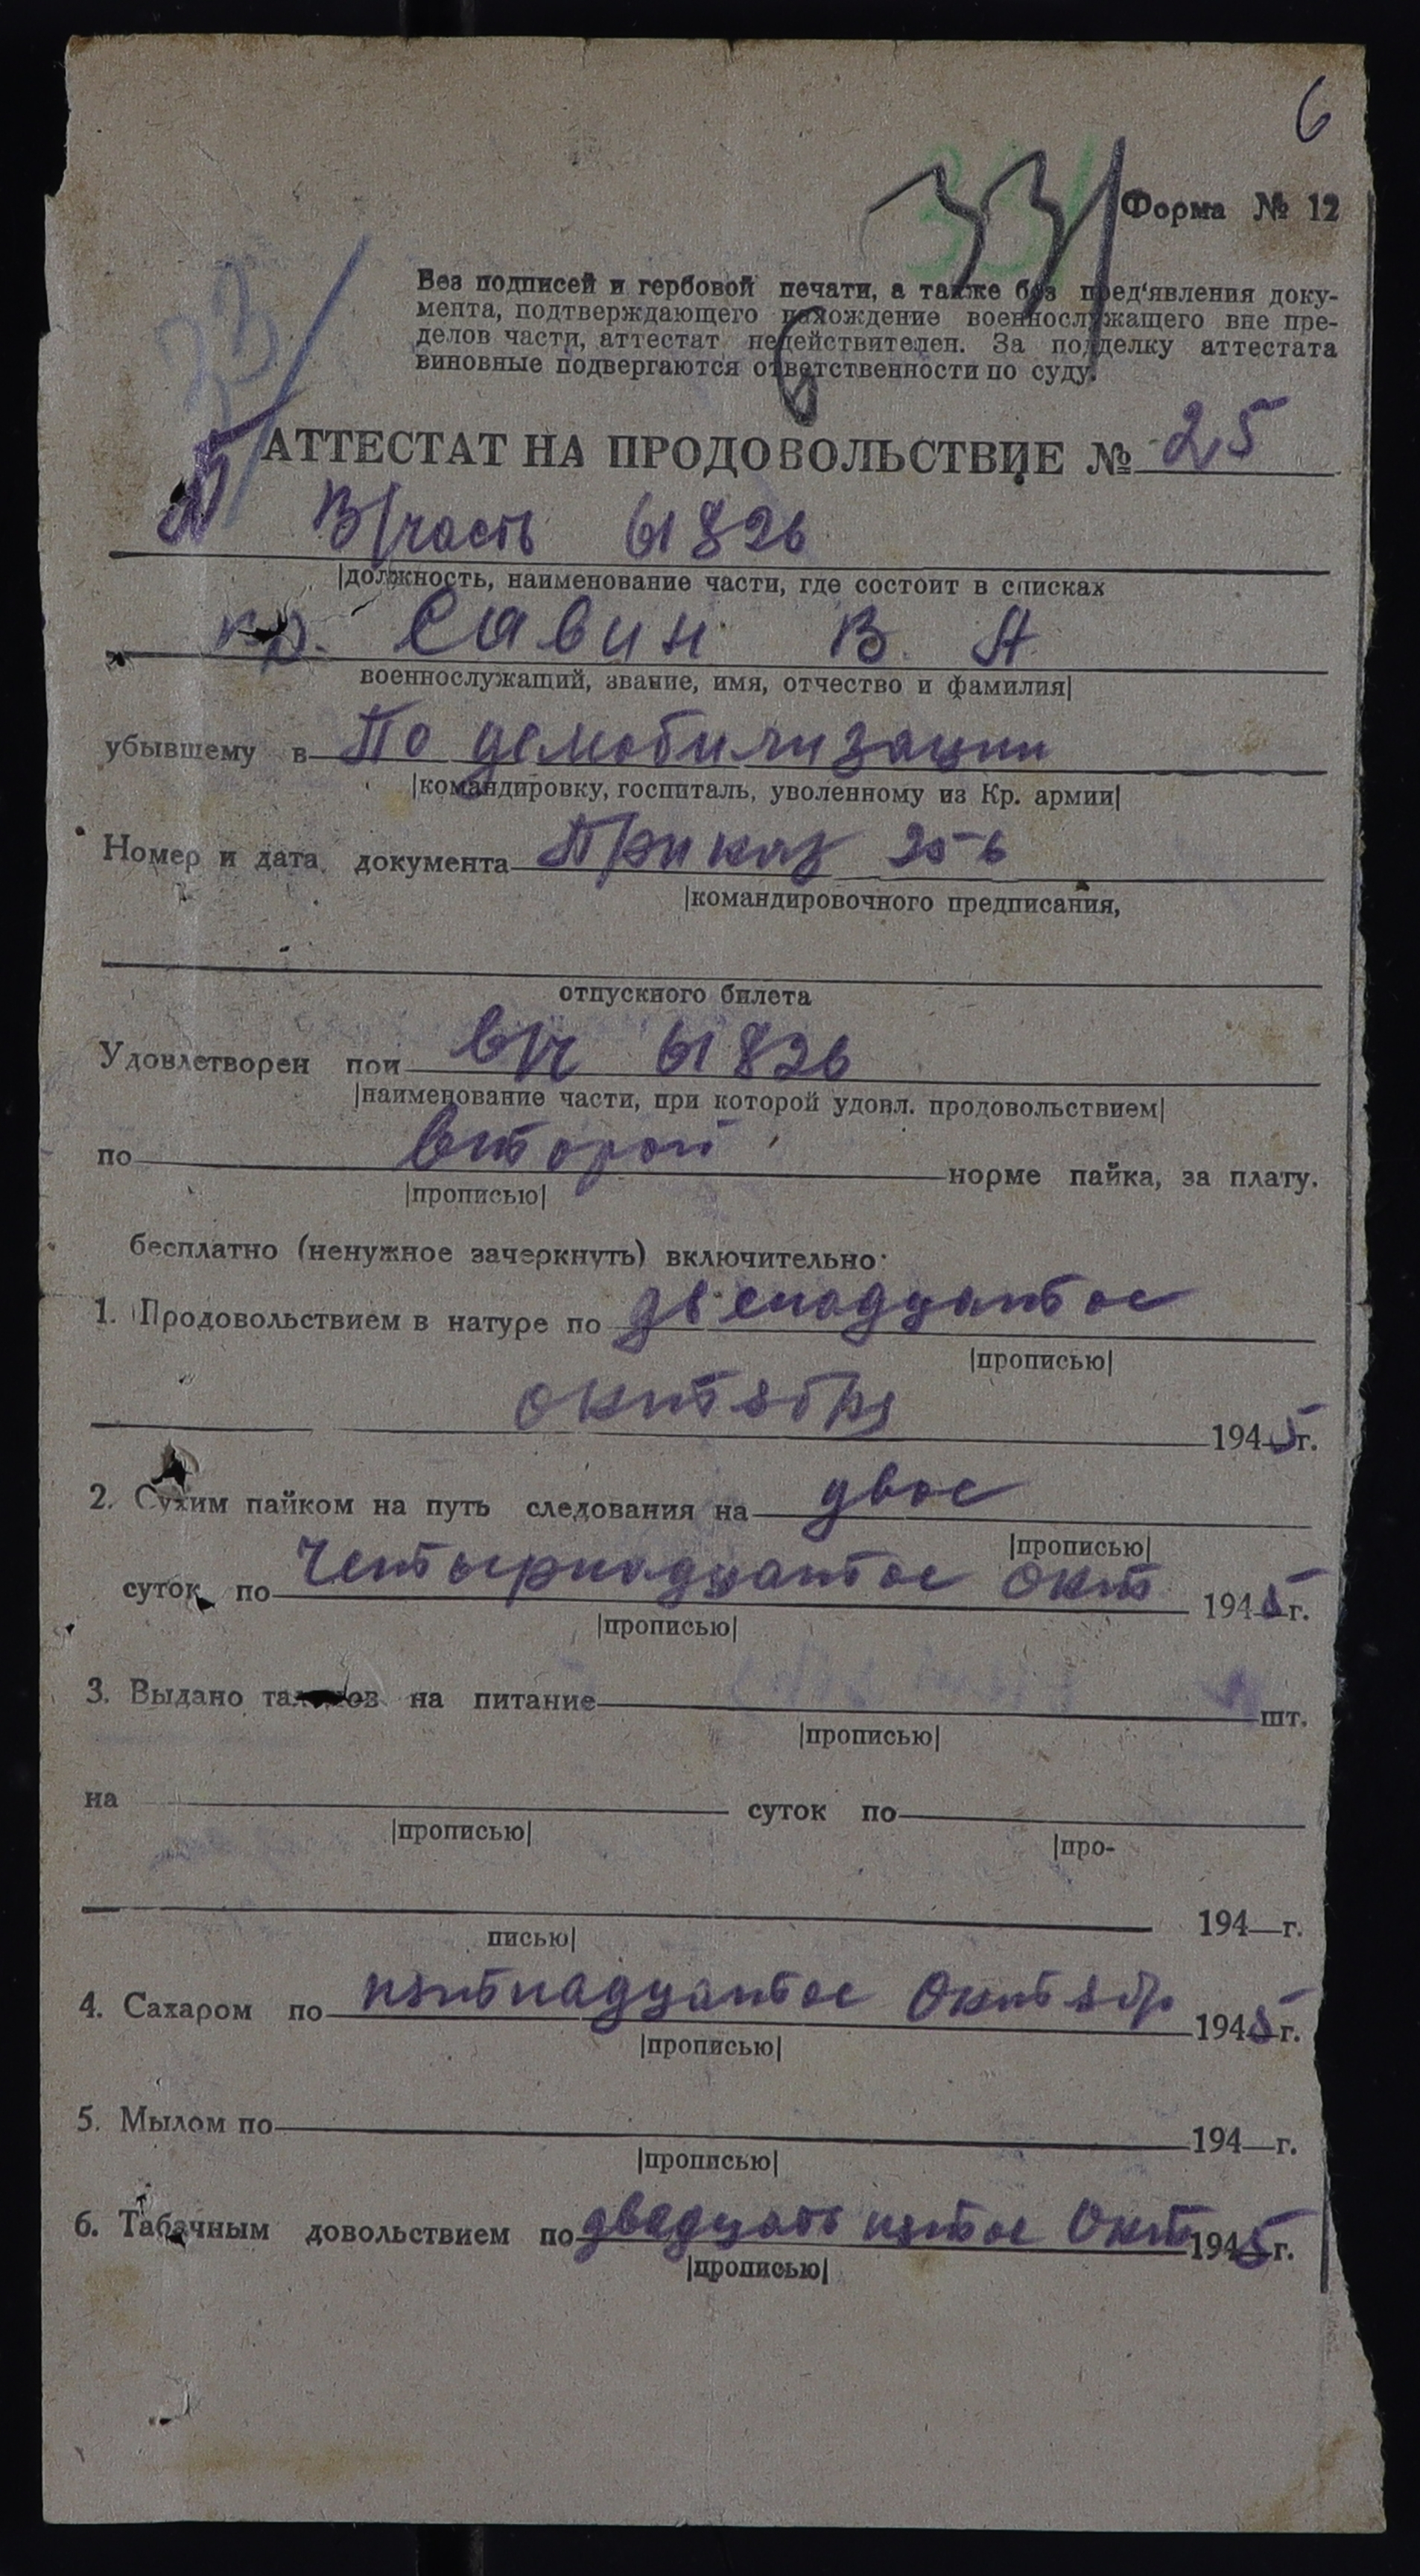 6
33/
Форма № 12
Без подписей и гербовой печати, а также без пред'явления доку-
мента, подтверждающего нахождение военнослужащего вне пре-
делов части, аттестат недействителен. За подделку аттестата
виновные подвергаются ответственности по суду.
23/
АТТЕСТАТ НА ПРОДОВОЛЬСТВИЕ № 25
В/часть 61826
|должность, наименование части, где состоит в списках
кр. Савин В. А.
военнослужащий, звание, имя, отчество и фамилия|
убывшему в По демобилизации
|командировку, госпиталь, уволенному из Кр. армии|
Номер и дата документа Приказ 256
|командировочного предписания,
отпускного билета
Удовлетворен при в/ч 61826
|наименование части, при которой удовл. продовольствием|
по второй норме пайка, за плату.
|прописью|
бесплатно (ненужное зачеркнуть) включительно:
1. Продовольствием в натуре по двенадцатое
|прописью|
октября 1945 г.
2. Сухим пайком на путь следования на двое
|прописью|
суток по Четырнадцатое окт 1945 г.
|прописью|
3. Выдано талонов на питание шт.
|прописью|
на суток по
|прописью| |про-
194 г.
писью|
4. Сахаром по пятнадцатое Октябр 1945 г.
|прописью|
5. Мылом по 194 г.
|прописью|
6. Табачным довольствием по двадцать пятое Окт 1945 г.
|прописью|